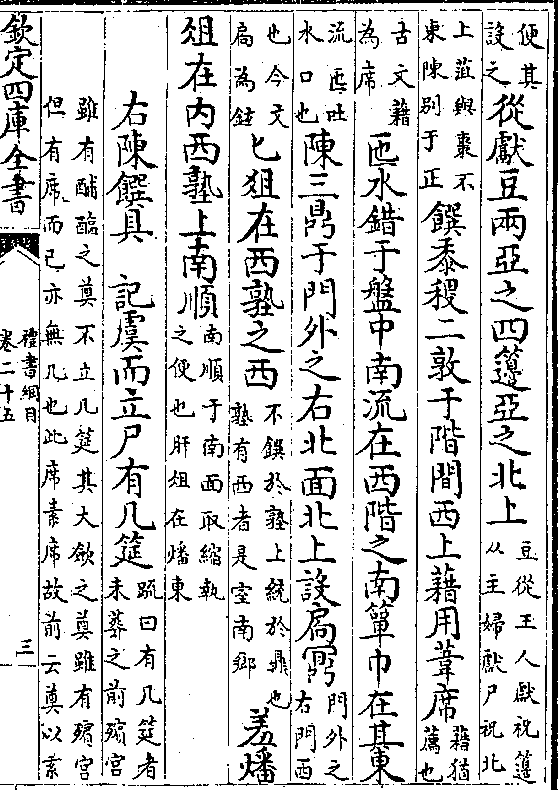 便其設之從獻豆兩亞之四籩亞之北上豆從主人獻祝籩从主婦獻尸祝北
上葅與棗不東陳别于正饌黍稷二敦于階間西上藉用葦席藉猶薦也
古文藉為席匜水錯于盤中南流在西階之南簞巾在其東
流匜吐水口也陳三鼎于門外之右北面北上設扃鼏門外之右門西
也今文扃為鉉匕俎在西塾之西不饌於塾上統於鼎也塾有西者是室南鄉羞燔
俎在内西塾上南順南順于南面取縮執之便也肝俎在燔東
右陳饌具　記虞而立尸有几筵疏曰有几筵者未葬之前殯宫
雖有酺醢之奠不立几筵其大斂之奠雖有殯宫但有席而已亦無几也此席素席故前云奠以素
欽定四庫全書
禮書綱目
卷二十五
三